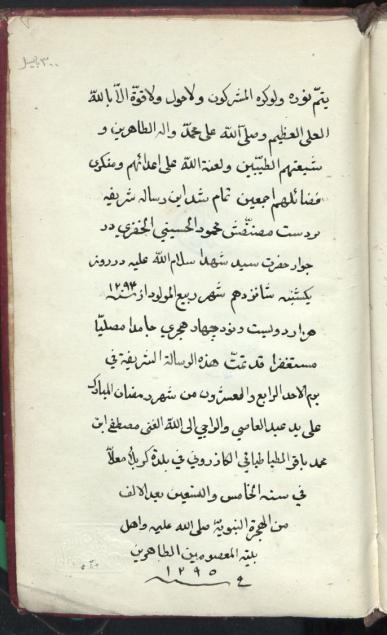 يتمّ نوره ولو كره المشركون ولا حول ولا قوّة الّا بالله
العلى العظيم وصلى الله على محمّد واله الطاهرين و
شيعتهم الطيّبين ولعنة الله على اعدائهم ومنكرى
فضائلهم اجمعين تمام شد اين رساله شريفه
بر دست مصنّفش محمود الحسينى در
جوار حضرت سيد شهدا سلام الله عليه در روز
يكشنبه شانزدهم شهر ربيع المولود از سنه ١٢٩٣
هزار دويست و نود چهار هجري حامدا مصليّا
مستغفرا قد تمّت هذه الرسالة الشريفة في
يوم الاحد الرابع والعشرون من شهر رمضان المبارك
على يد عبد العاصي والراجي الى الله الغنى مصطفى ابن
محمد باقر الطباطبائي الكازروني في بلدة كربلاء معلّا
في سنه الخامس والتسعين بعد الالف
من الهجرة النبويّة صلى الله عليه واهل
بيته المعصومين الطاهرين
١٢٩٥